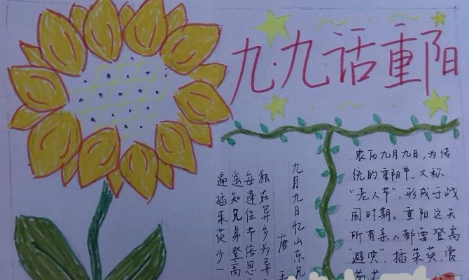 九·九话重阳
九月九日忆山东兄
唐 王
独在异乡为异
每逢佳节倍思
遥知兄弟登高
遍插茱萸少一
农历九月九日,为传
统的重阳节,又称
“老人节”,形成于战
国时期。重阳这天
所有亲人都要登高
“避灾”,插茱萸,赏